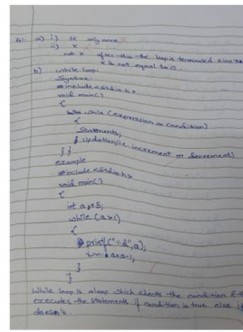 a) i)
ii) x
not x after this the loop is terminated since the
x is not equal to 0.
b) while loop
Syntax
#include<stdio.h>
void main()
{
while (expression or condition)
{
Statements;
Updation(ie increment or decrement)
} }
example
#include<stdio.h>
void main()
{
int a
while (a>1)
{
printf("%d",a);
}
}
While loop is a loop which checks the condition &
executes the statements if condition is true else it
doesn't.